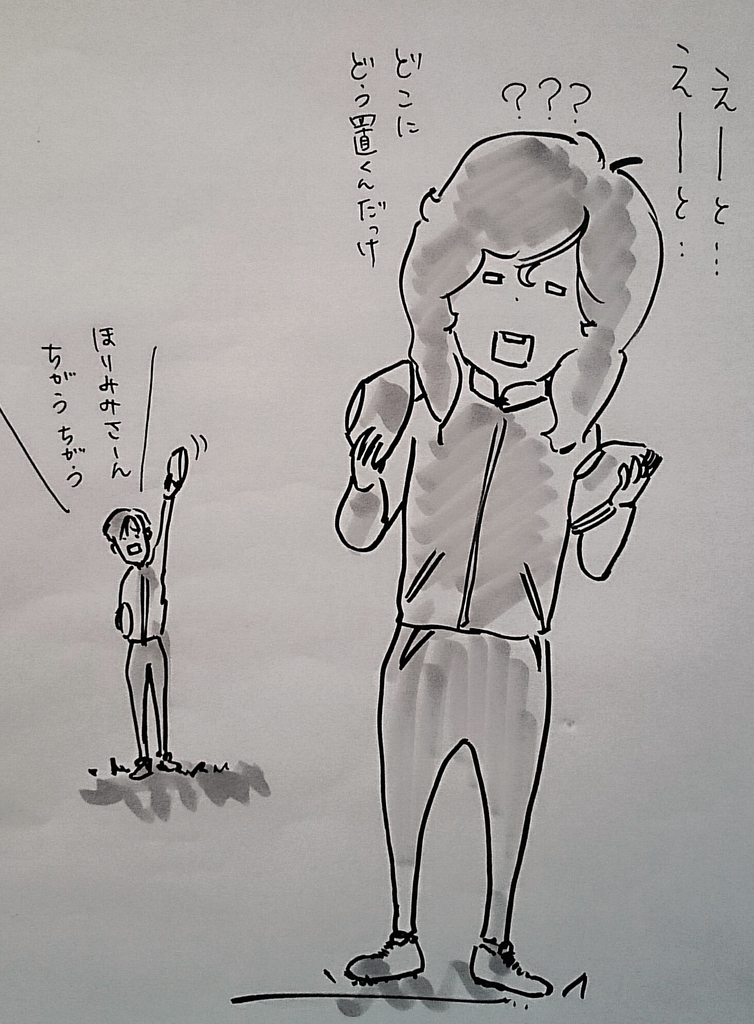 えーと…
えーと…
???
どこに
どう置くんだっけ
ほりみみさーん
ちがうちがう